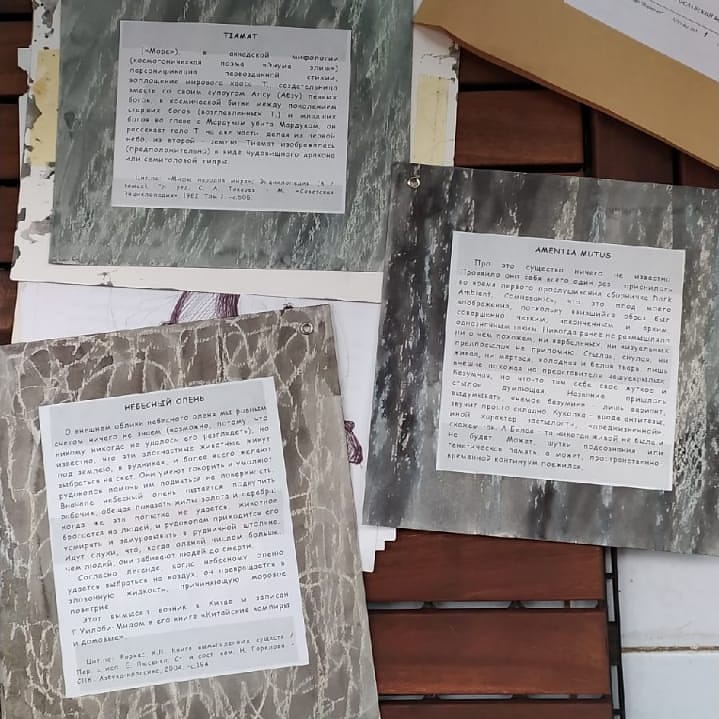 ТІАМАТ
(«Море»), в аккадской мифологии
(космогоническая поэма «Энума элиш»)
персонификация первозданной стихии,
воплощение мирового хаоса. Т. создательница
вместе со своим супругом Апсу (Абзу) первых
богов, в космической битве между поколением
старших богов (возглавляемых Т.) и младших
богов во главе с Мардуком убита Мардуком, он
рассекает тело Т. на две части, делая из первой
небо, из второй - землю. Тиамат изображалась
(предположительно) в виде чудовищного дракона
или семиголовой гидры.
Цит. по: «Мифы народов мира: Энциклопедия. (В 2
томах). Гл. ред. С. А. Токарев.- М.: «Советская
Энциклопедия», 1982. Том 2. -с.505.
AMENTIA MUTUS
Про это существо ничего не известно,
проявило оно себя всего один раз
во время первого прослушивания сборничка Dark
Ambient. Сомневаюсь, что это плод моего
воображения, поскольку явившийся образ был
совершенно чётким, законченным и ярким
Никогда ранее не размышляла
ни о чём похожем, ни вербальных ни визуальных
предпосылок не припомню. Стылая,
живая, ни мёртвая, холодная и белая тварь, лишь
внешне похожа на представителя
безумная, но что-то там себе жуткое и
думающая. Название пришлось
выдумывать, «немое безумие» лишь вариант,
звучит просто складно. Куколка - вроде антитеза,
иной характер
скажем так. А Белая - та никогда живой не была и
не будет. Может, шутки подсознания или
генетическая память, а может, пространственно-
временной континуум поехал.
НЕБЕСНЫЙ ОЛЕНЬ
О внешнем облике небесного оленя мы равным
счетом ничего не знаем (возможно, потому что
никому никогда не удалось его разглядеть), но
известно, что эти злосчастные животные живут
под землею, в рудниках, и более всего желают
выбраться на свет. Они умеют говорить и умоляют
рудокопов помочь им подняться на поверхность.
Вначале небесный олень пытается подкупить
рабочих, обещая показать жилы золота и серебра;
когда же эта попытка не удается, животное
бросается на людей, и рудокопам приходится его
усмирять и замуровывать в рудничной штольне.
Идут слухи, что, когда оленей числом больше,
чем людей, они забивают людей до смерти.
Согласно легенде, когда небесному оленю
удается выбраться на воздух, он превращается в
зловонную жидкость, причиняющую моровое
поветрие.
Этот вымысел возник в Китае и записан
Г. Уилоби-Мидом в его книге «Китайские вампиры
и домовые».
Цит. по: Борхес Х.Л. Книга вымышленных существ. /
Пер. с исп. Е. Лысенко. Сост. ком. Н. Горелова. -
СПб.: Азбука-классика, 2004. -с.164.